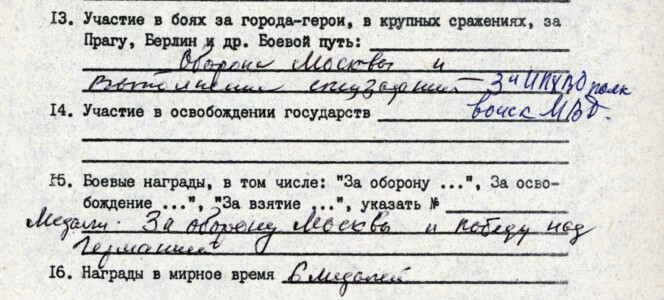 13. Участие в боях за города-герои, в крупных сражениях, за
Прагу, Берлин и др. Боевой путь:
Оборона Москвы и
выполнение спецзаданий - полк
14. Участие в освобождении государств войск МВД.
15. Боевые награды, в том числе: "За оборону ...", За осво-
бождение ...", "За взятие ...", указать №
Медали: За оборону Москвы и победу над
Германией
16. Награды в мирное время 6 медалей